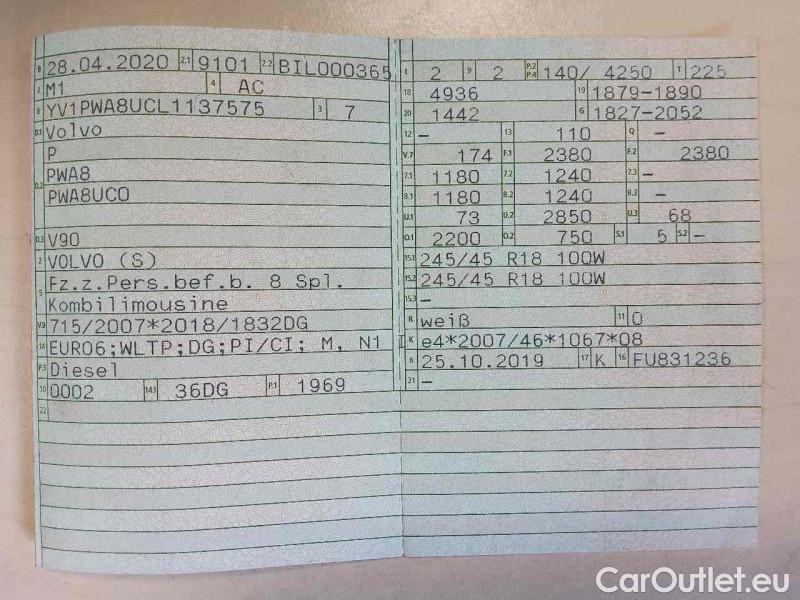 B 28.04.2020 2.1 9101 2.2 BIL000365
J M1 4 AC
E YV1PWA8UCL1137575 3 7
D.1 Volvo
P
D.2 PWA8
PWA8UC0
D.3 V90
2 VOLVO (S)
5 Fz.z.Pers.bef.b. 8 Spl.
Kombilimousine
V.9 715/2007*2018/1832DG
14 EURO6;WLTP;DG;PI/CI; M, N1 I
P.3 Diesel
10 0002 14.1 36DG P.1 1969
22
L 2 9 2 P.2 P.4 140/ 4250 T 225
18 4936 19 1879-1890
20 1442 G 1827-2052
12 - 13 110 Q -
V.7 174 F.1 2380 F.2 2380
7.1 1180 7.2 1240 7.3 -
8.1 1180 8.2 1240 8.3 -
U.1 73 U.2 2850 U.3 68
O.1 2200 O.2 750 S.1 5 S.2 -
15.1 245/45 R18 100W
15.2 245/45 R18 100W
15.3 -
R weiß 11 0
K e4*2007/46*1067*08
6 25.10.2019 17 K 16 FU831236
21 -
CarOutlet.eu